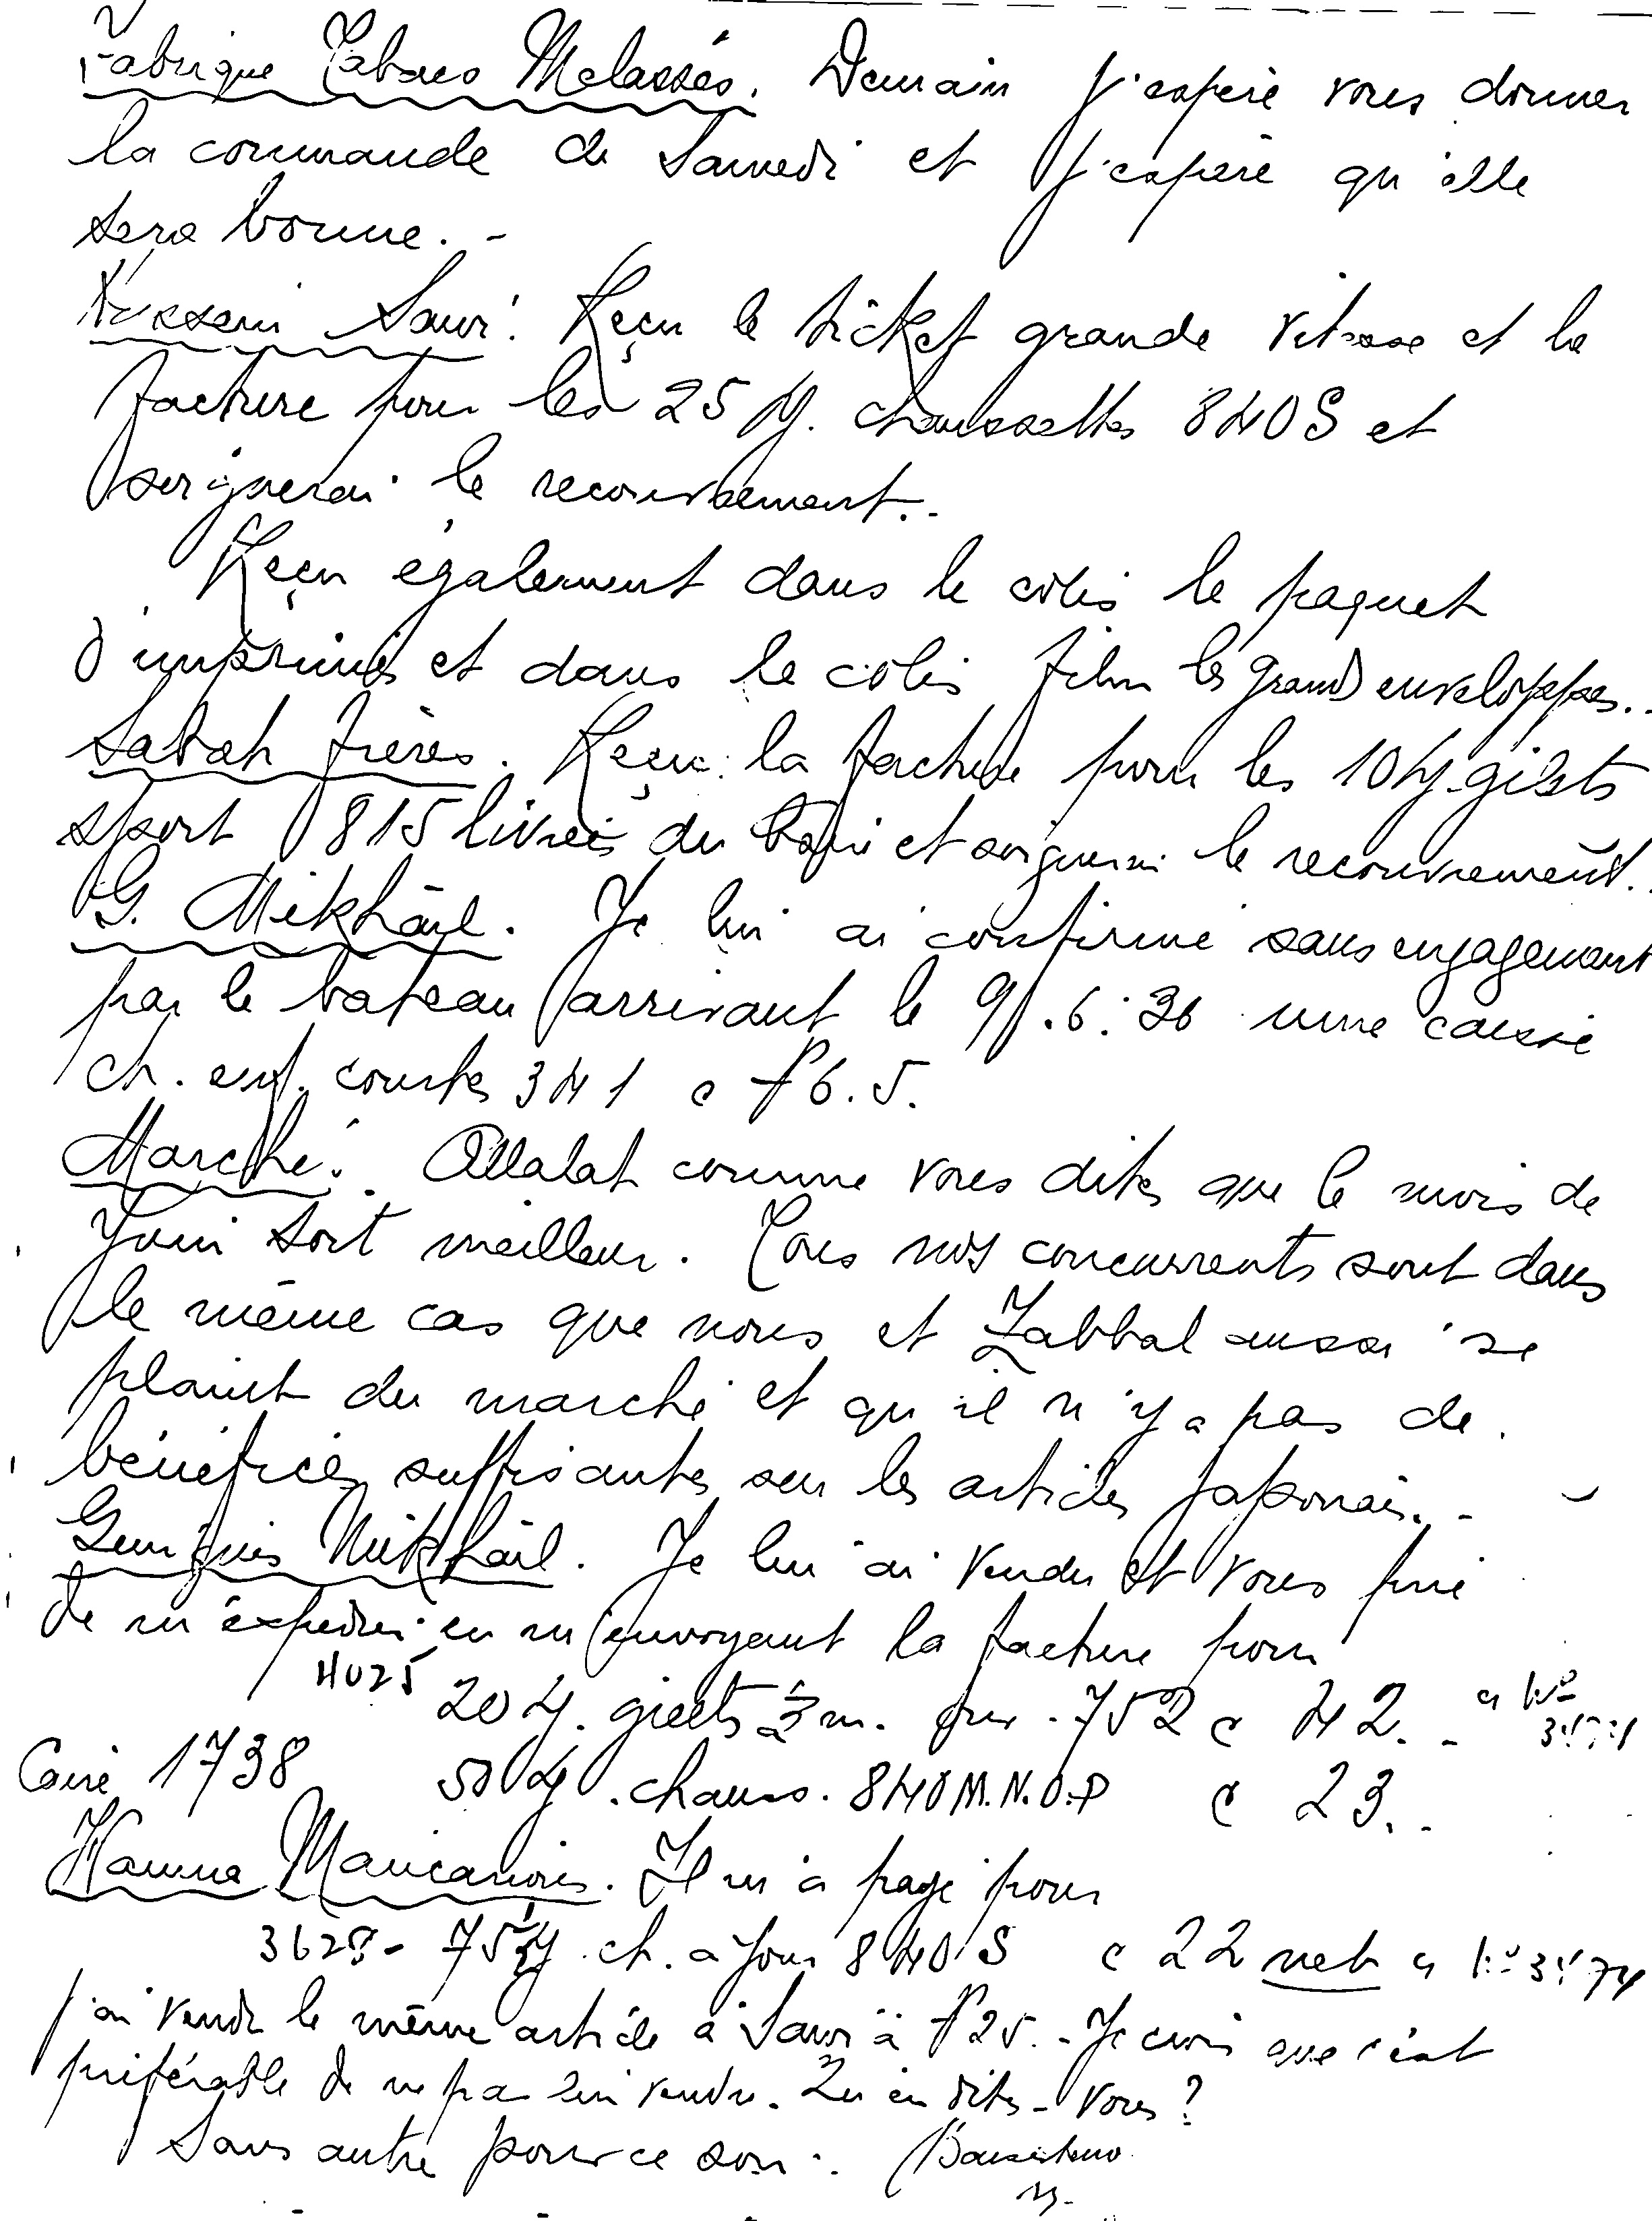 Fabrique Tabacs Melassés. Demain j'espère vous donner
la commande de Samedi et j'espère qu'elle
sera bonne. -
Hussein Sawi: Reçu le ticket grande vitesse et la
facture pour les 25 Y. chaussettes 840S et
soignerai le recouvrement. -
Reçu également dans le colis le paquet
d'imprimés et dans le colis film les grands enveloppes. -
Sabah frères. Reçu la facture pour les 10 Y. gilets
sport 815 livrés du et soignerai le recouvrement. -
G. Mikhaïl. Je lui ai confirmé sans engagement
par le bateau arrivant le 9.6.36 une caisse
ch. enf. courtes 341 a P6.5.
Marché: Allalat comme vous dites que le mois de
Juin soit meilleur. Tous nos concurrents sont dans
le même cas que nous et Zabbal aussi se
plaint du marché et qu'il n'y a pas de
bénéfices suffisantes sur les articles japonais. -
Guirguis Mikhaïl. Je lui ai vendu et vous prie
de m'expédier en m'envoyant la facture pour
4025 20 Y. gilets ½ m. 752 a 42. -
Caire 1738 50 Y. chauss. 840 M.N.O.P a 23. -
Hanna. Il m'a payé pour
3628 - 75 Y. ch. à jour 840 S a 22 net
j'ai vendu le même article à Sawi à P25. - Je crois que c'est
préférable de ne pas lui vendre. Qu'en dites-vous?
Sans autre pour ce soir.